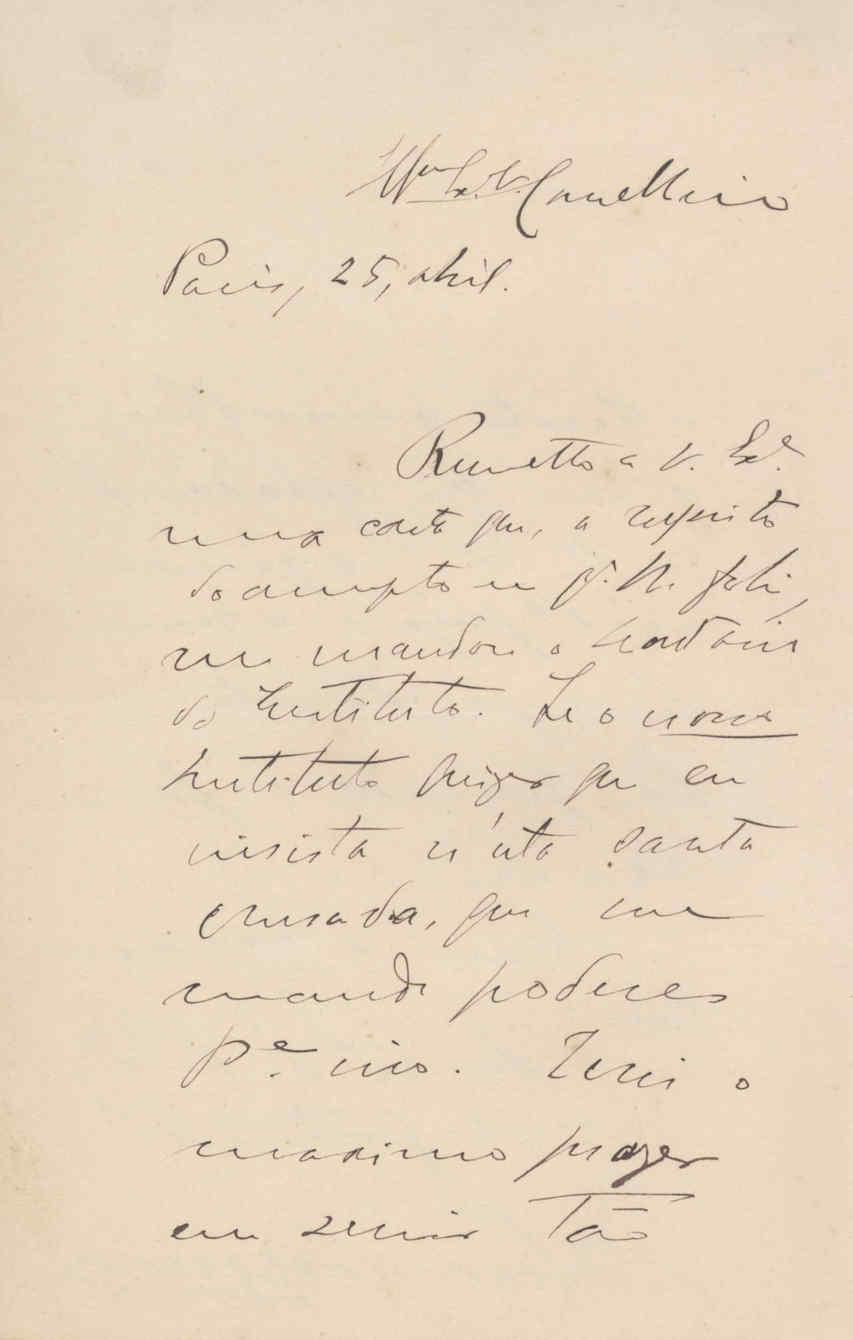 Illmo Ex. Sr. Conselheiro
Paris, 25, abril.
Remetto a V. Exª
uma carta que, a respeito
do assumpto em qº. lhe falei,
me mandou o secretario
do Instituto. Se o nosso
Instituto quizer que eu
insista n'esta santa
crusada, que me
mande poderes
pª isso. Terei o
maximo prazer
em servir tão